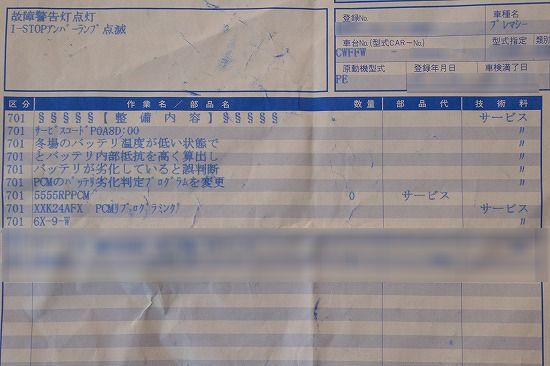 故障警告灯点灯
I-STOPアンバーランプ点滅
登録No.
車種名
プレマシー
車台No.(型式CAR-No.)
型式指定 類別
CWFFW
原動機型式 登録年月日 車検満了日
PE
区分 作業名/部品名 数量 部品代 技術料
701 §§§§§【整備内容】§§§§§ サービス
701 サービスコードP0A8D:00 〃
701 冬場のバッテリ温度が低い状態で 〃
701 とバッテリ内部抵抗を高く算出し 〃
701 バッテリが劣化していると誤判断 〃
701 PCMのバッテリ劣化判定プログラムを変更 〃
701 5555RPPCM 0 サービス
701 XXK24AFX PCMリプログラミング サービス
701 6X-9-W 〃